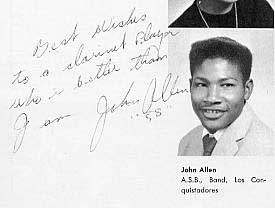 Best Wishes
to a clarinet player
who is better than
I am John Allen
"58"
John Allen
A.S.B., Band, Los Con-
quistadores